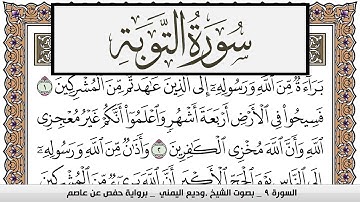 سُورَةُ التَّوْبَةِ
بَرَآءَةٌ مِّنَ ٱللَّهِ وَرَسُولِهِۦٓ إِلَى ٱلَّذِينَ عَٰهَدتُّم مِّنَ ٱلْمُشْرِكِينَ ١
فَسِيحُوا۟ فِى ٱلْأَرْضِ أَرْبَعَةَ أَشْهُرٍ وَٱعْلَمُوٓا۟ أَنَّكُمْ غَيْرُ مُعْجِزِى
ٱللَّهِ وَأَنَّ ٱللَّهَ مُخْزِى ٱلْكَٰفِرِينَ ٢ وَأَذَٰنٌ مِّنَ ٱللَّهِ وَرَسُولِهِۦٓ
إِلَى ٱلنَّاسِ يَوْمَ ٱلْحَجِّ ٱلْأَكْبَرِ أَنَّ ٱللَّهَ بَرِىٓءٌ مِّنَ ٱلْمُشْرِكِينَ
السورة ٩ _ بصوت الشيخ .وديع اليمني _ برواية حفص عن عاصم